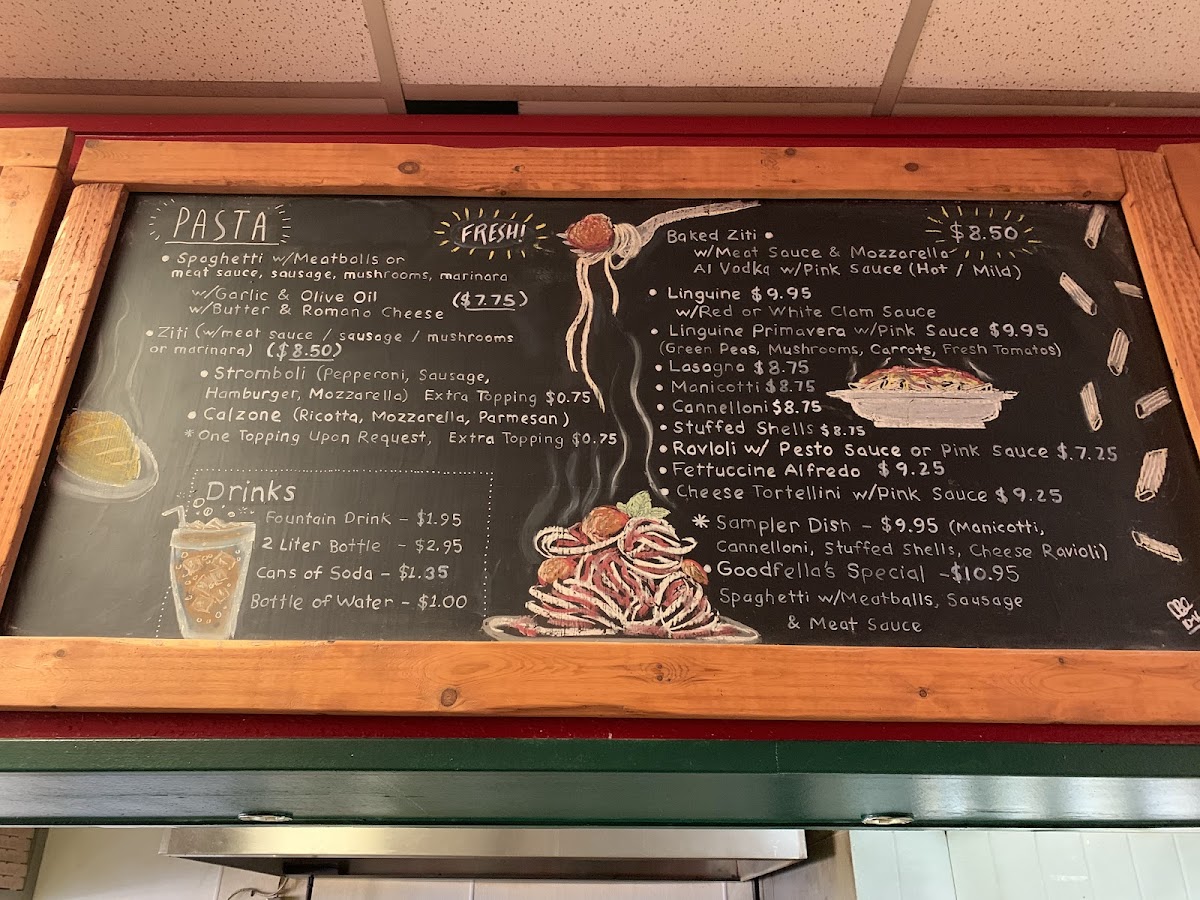 PASTA
FRESH!
• Spaghetti w/Meatballs or
meat sauce, sausage, mushrooms, marinara
w/Garlic & Olive Oil ($7.75)
w/Butter & Romano Cheese
• Ziti (w/meat sauce / sausage / mushrooms
or marinara) ($8.50)
• Stromboli (Pepperoni, Sausage,
Hamburger, Mozzarella) Extra Topping $0.75
• Calzone (Ricotta, Mozzarella, Parmesan)
*One Topping Upon Request, Extra Topping $0.75
Drinks
Fountain Drink - $1.95
2 Liter Bottle - $2.95
Cans of Soda - $1.35
Bottle of Water - $1.00
Baked Ziti • $8.50
w/Meat Sauce & Mozzarella
Al Vodka w/Pink Sauce (Hot / Mild)
• Linguine $9.95
w/Red or White Clam Sauce
• Linguine Primavera w/Pink Sauce $9.95
(Green Peas, Mushrooms, Carrots, Fresh Tomatos)
• Lasagna $8.75
• Manicotti $8.75
• Cannelloni $8.75
• Stuffed Shells $8.75
• Ravioli w/ Pesto Sauce or Pink Sauce $.7.25
• Fettuccine Alfredo $9.25
• Cheese Tortellini w/Pink Sauce $9.25
* Sampler Dish - $9.95 (Manicotti,
Cannelloni, Stuffed Shells, Cheese Ravioli)
• Goodfella's Special - $10.95
Spaghetti w/Meatballs, Sausage
& Meat Sauce